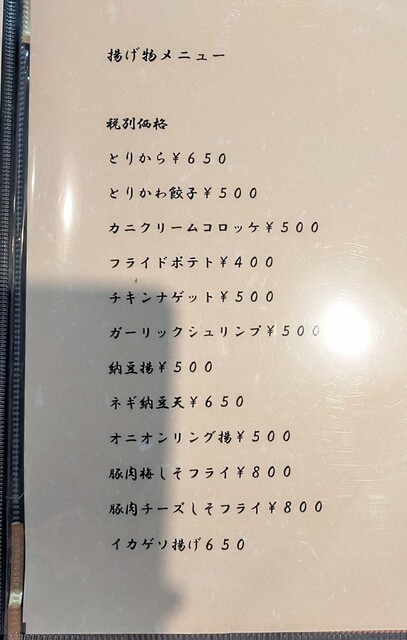 揚げ物メニュー
税別価格
とりから¥650
とりかわ餃子¥500
カニクリームコロッケ¥500
フライドポテト¥400
チキンナゲット¥500
ガーリックシュリンプ¥500
納豆揚¥500
ネギ納豆天¥650
オニオンリング揚¥500
豚肉梅しそフライ¥800
豚肉チーズしそフライ¥800
イカゲソ揚げ650